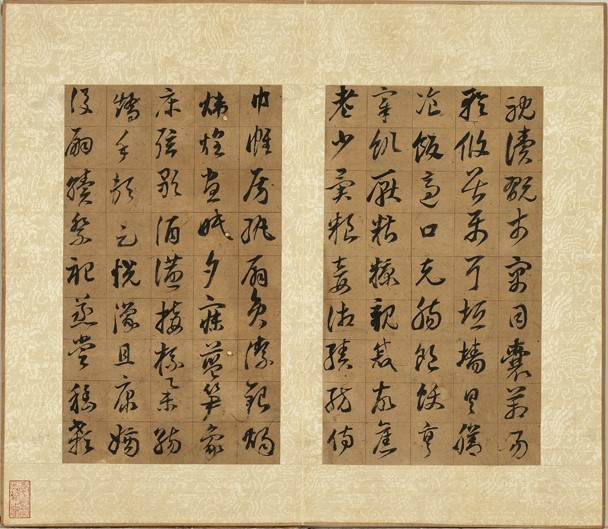 耽讀翫市寓目囊箱易
輶攸畏屬耳垣牆具膳
飡飯適口充腸飽飫烹
宰飢厭糟糠親戚故舊
老少異糧妾御績紡侍
巾帷房紈扇員潔銀燭
煒煌晝眠夕寐藍笋象
床弦歌酒讌接杯舉觴
矯手頓足悅豫且康嫡
後嗣續祭祀蒸嘗稽顙